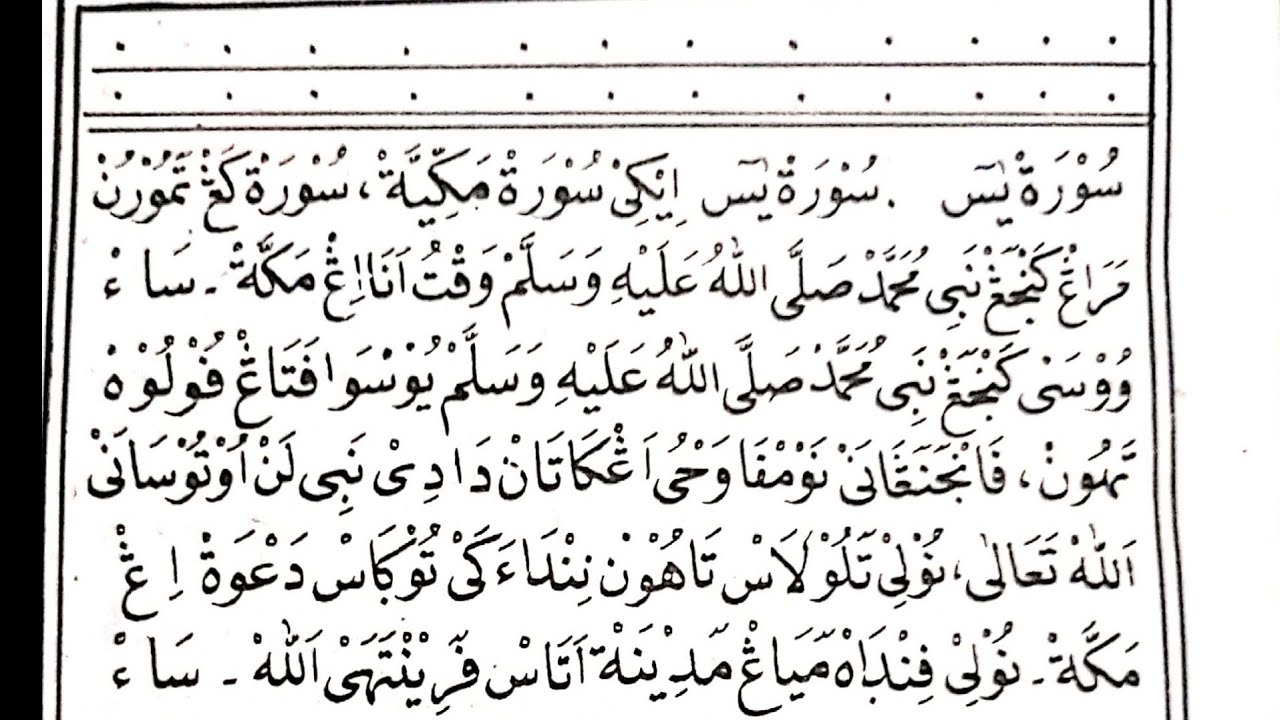 سُوْرَةْ يٰسٓ . سُوْرَةْ يٰسٓ اِيْكِيْ سُوْرَةْ مَكِّيَّةْ، سُوْرَةْ كَڠْ تَمُوْرُنْ
مَرَاڠْ كَنْجَڠْ نَبِى مُحَمَّدْ صَلَّى اللهُ عَلَيْهِ وَسَلَّمْ وَقْتُ اَنَا اِڠْ مَكَّةْ ـ سَاءْ
وُوْسَىْ كَنْجَڠْ نَبِى مُحَمَّدْ صَلَّى اللهُ عَلَيْهِ وَسَلَّمْ يُوْسْوَا فَتَاڠْ فُوْلُوْهْ
تَهُونْ، فَانْجَنَڠَانَىْ نَوْمْفَا وَحْىُ اَڠْكَاتَانْ دَادِىْ نَبِى لَنْ اُوْتُوْسَانَىْ
اَللهْ تَعَالٰى، نُوْلِىْ تَلُوْلَاسْ تَاهُوْنْ نِنْدَاءَكَىْ تُوْكَاسْ دَعْوَةْ اِڠْ
مَكَّةْ ـ نُوْلِىْ فِنْدَاهْ مَيَاڠْ مَدِيْنَةْ اَتَاسْ فَرِيْنْتَهَىْ اَللهْ ـ سَاءْ